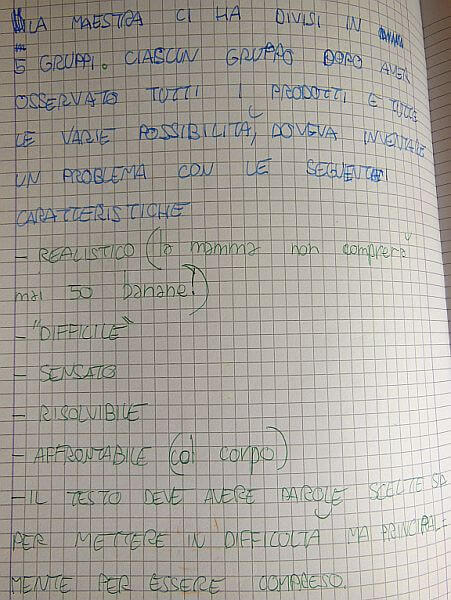 LA MAESTRA CI HA DIVISI IN
5 GRUPPI. CIASCUN GRUPPO DOPO AVER
OSSERVATO TUTTI I PRODOTTI E TUTTE
LE VARIE POSSIBILITÀ, DOVEVA INVENTARE
UN PROBLEMA CON LE SEGUENTI
CARATTERISTICHE
- REALISTICO (la mamma non comprerà
mai 50 banane!)
- "DIFFICILE"
- SENSATO
- RISOLVIBILE
- AFFRONTABILE (col corpo)
- IL TESTO DEVE AVERE PAROLE SCELTE SIA
PER METTERE IN DIFFICOLTÀ MA PRINCIPAL=
MENTE PER ESSERE COMPRESO.